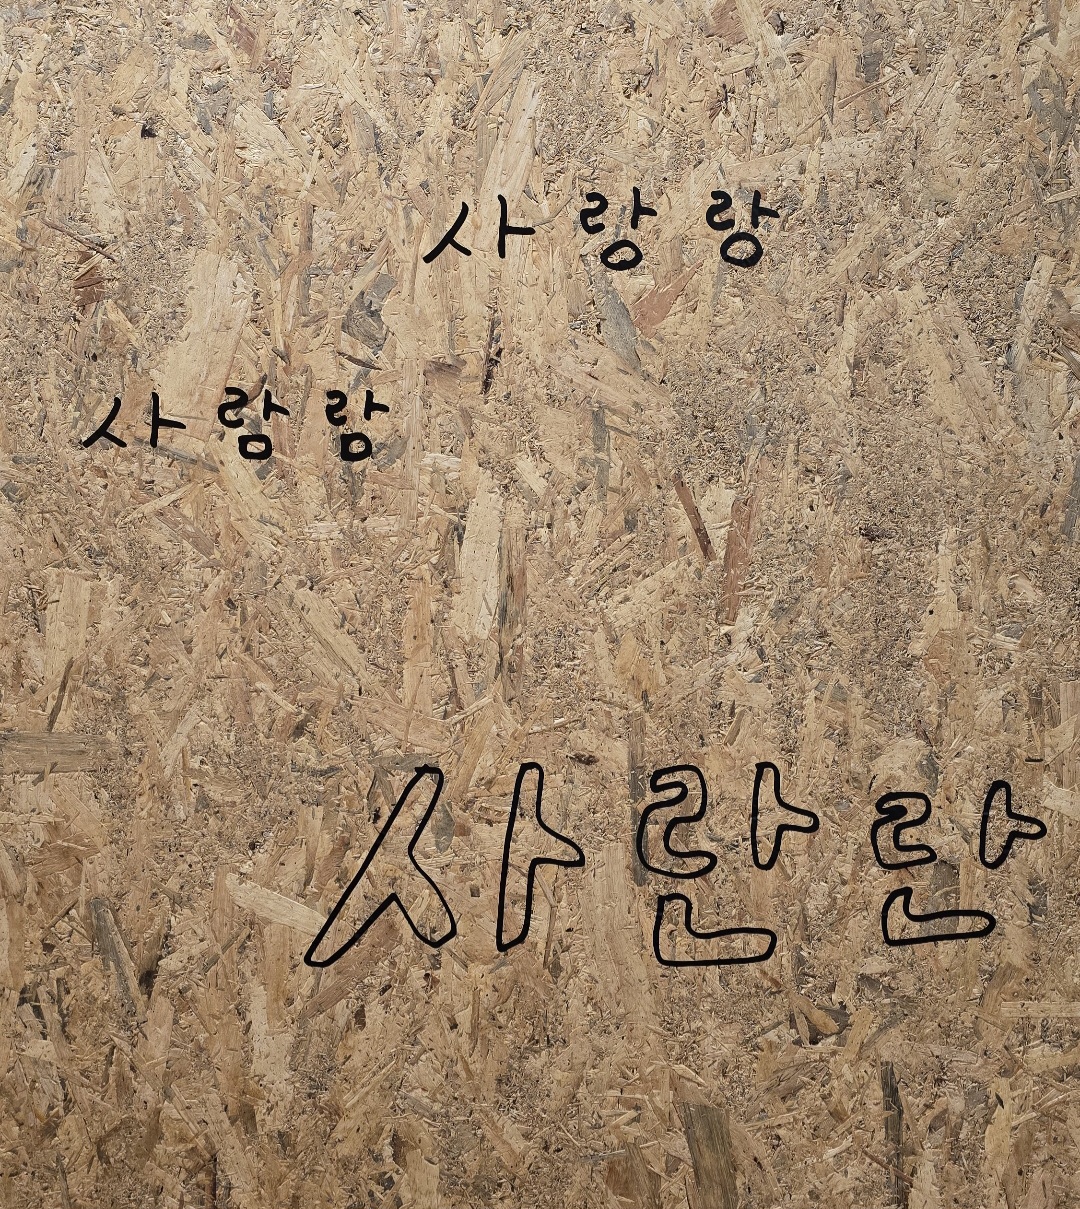 사랑랑
사람람
사란란